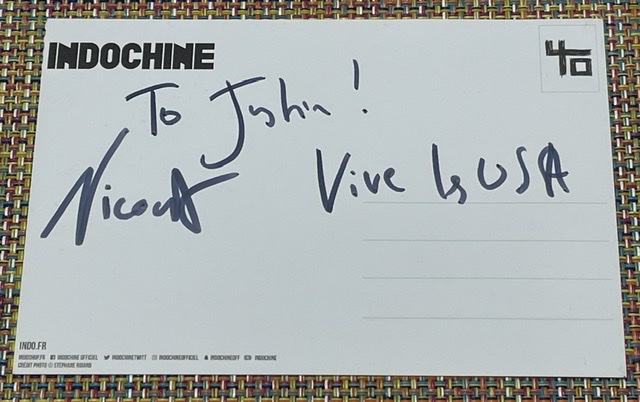 INDOCHINE
40
To Justin !
Nicola
Vive les USA
INDO.FR
INDOSHOP.FR INDOCHINE OFFICIEL INDOCHINETWITT INDOCHINEOFFICIEL INDOCHINEOFF INDOCHINE
CRÉDIT PHOTO © STÉPHANE RIDARD